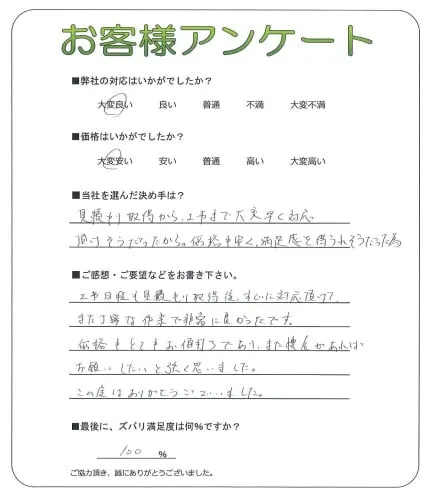 お客様アンケート
■弊社の対応はいかがでしたか？
大変良い 良い 普通 不満 大変不満
■価格はいかがでしたか？
大変安い 安い 普通 高い 大変高い
■当社を選んだ決め手は？
見積もり取得から、工事まで大変早く対応
頂けそうだったから。価格も安く、満足感を得られそうだった為
■ご感想・ご要望などをお書き下さい。
工事日程も見積もり取得後、すぐに対応頂けて、
また丁寧な作業で非常に良かったです。
価格もとてもお値打ちであり、また機会があれば
お願いしたいと強く思いました。
この度はありがとうございました。
■最後に、ズバリ満足度は何％ですか？
100 ％
ご協力頂き、誠にありがとうございました。